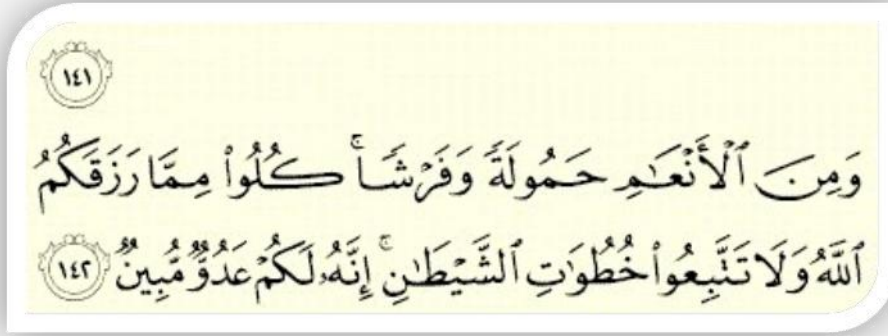 ١٤١
وَمِنَ ٱلْأَنْعَٰمِ حَمُولَةً وَفَرْشًا ۚ كُلُوا۟ مِمَّا رَزَقَكُمُ
ٱللَّهُ وَلَا تَتَّبِعُوا۟ خُطُوَٰتِ ٱلشَّيْطَٰنِ ۚ إِنَّهُۥ لَكُمْ عَدُوٌّ مُّبِينٌ ١٤٢